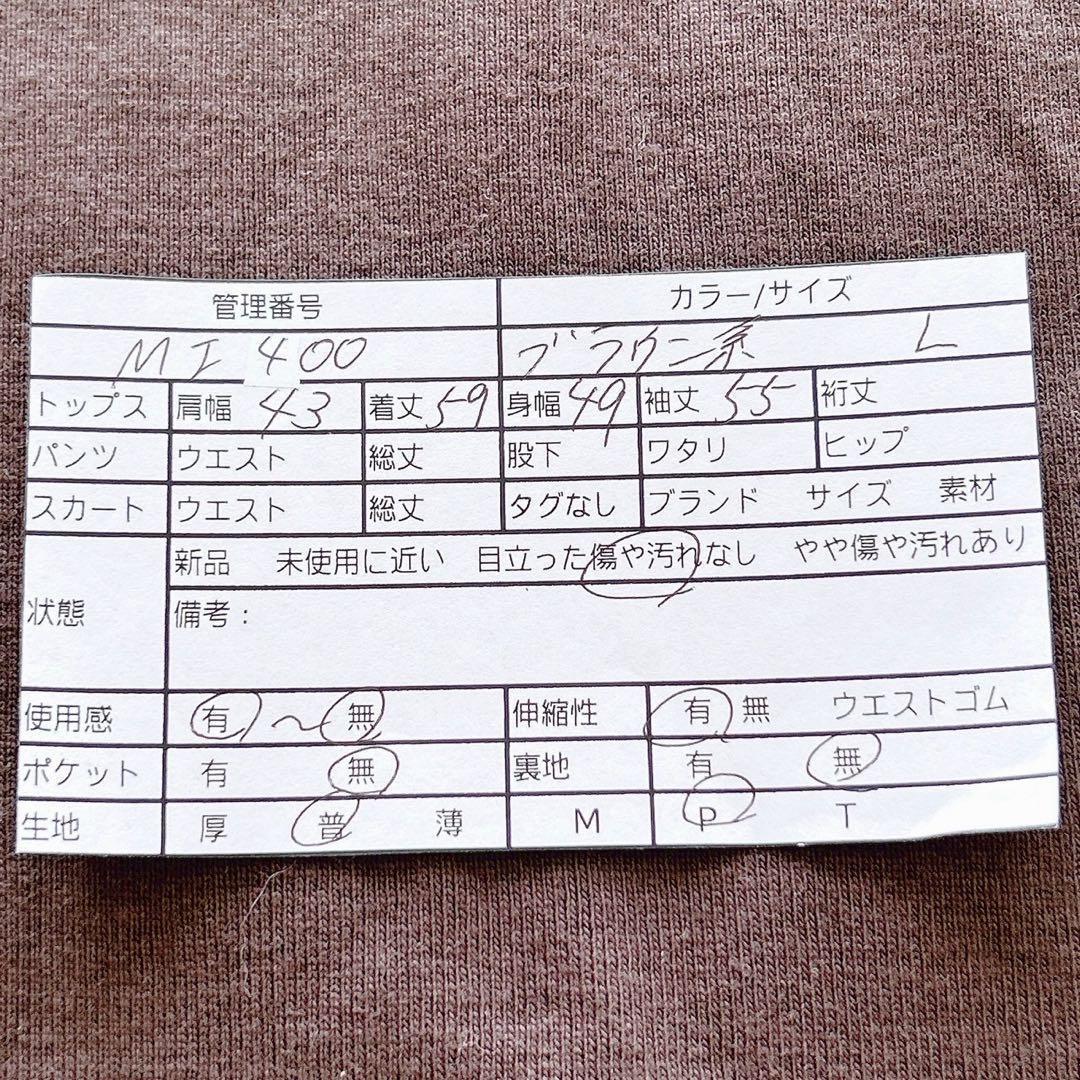 管理番号 カラー/サイズ
MI 400 ブラウン系 L
トップス 肩幅 43 着丈 59 身幅 49 袖丈 55 裄丈
パンツ ウエスト 総丈 股下 ワタリ ヒップ
スカート ウエスト 総丈 タグなし ブランド サイズ 素材
状態 新品 未使用に近い 目立った傷や汚れなし やや傷や汚れあり
備考：
使用感 有 〜 無 伸縮性 有 無 ウエストゴム
ポケット 有 無 裏地 有 無
生地 厚 普 薄 M P T